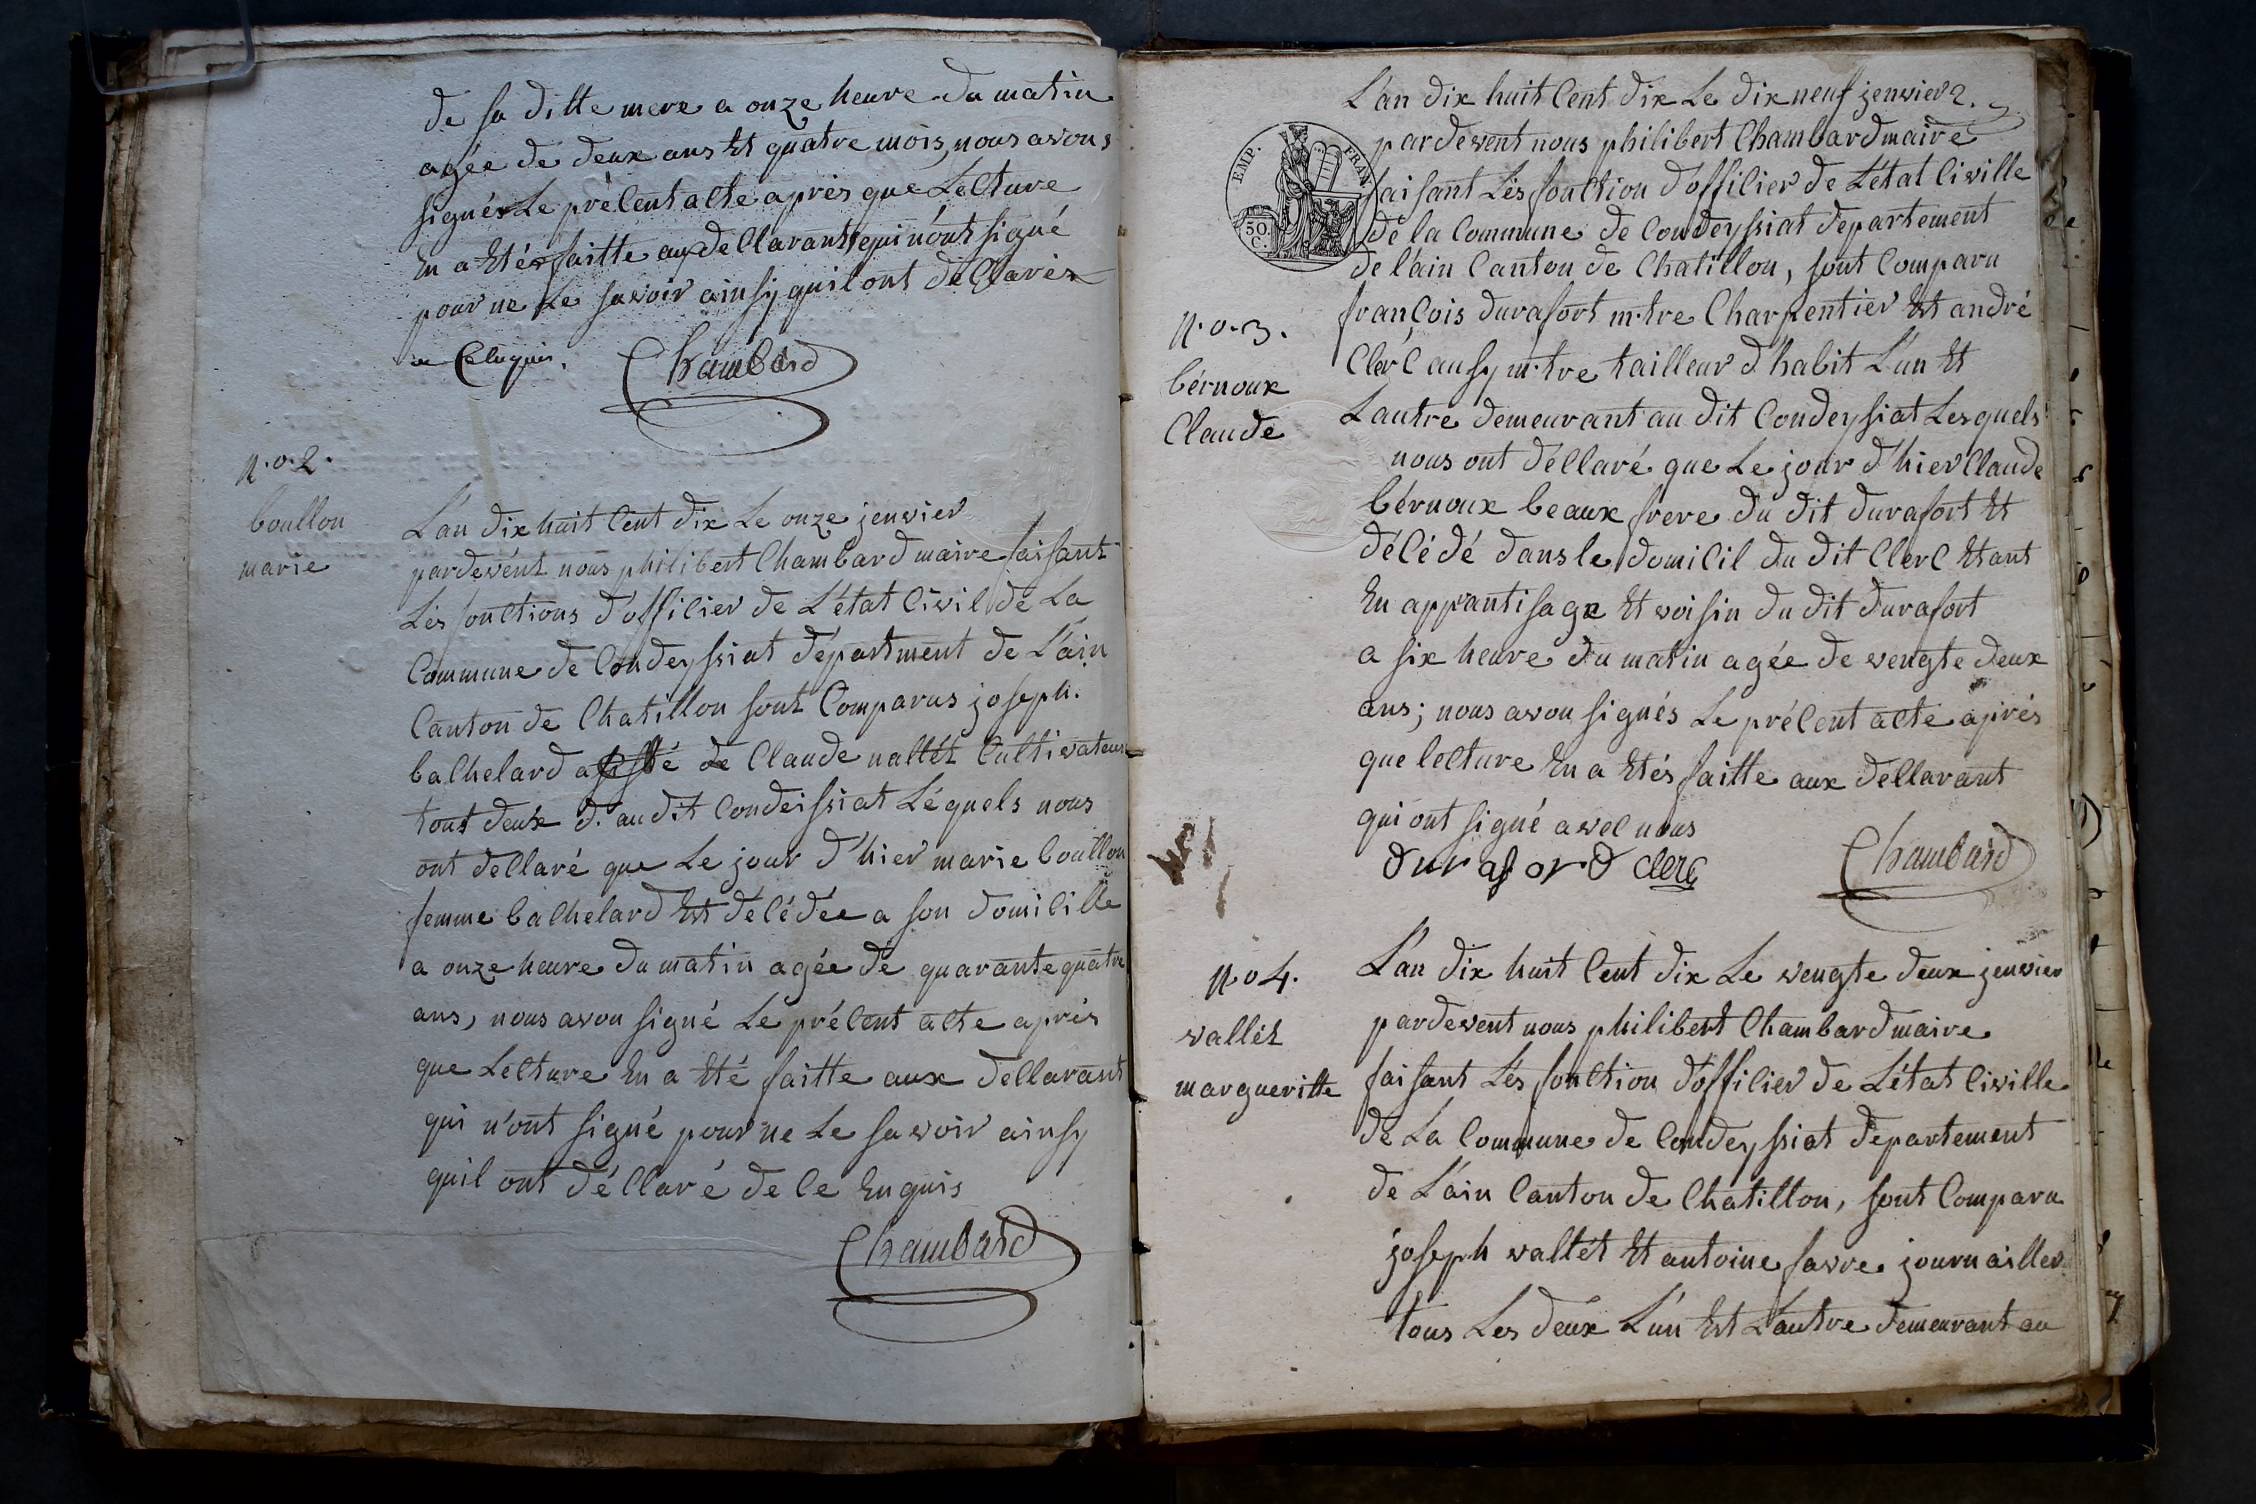 de sa ditte mere a onze heure du matin
agée de deux ans Et quatre mois, nous avons
signés Le précent acte aprés que Lecture
En a Etés faitte aux declarants qui n'ont signé
pour ne Le savoir ainsy quil ont déclarés
Chambard
n.o.2.
boullon
marie
L'an dix huit cent dix Le onze jenvier
pardevént nous philibert Chambard maire faisant
Lés fonctions d'officier de L'état civil de La
Commune de Condeyssiat département de L'ain
Canton de Chatillon sont Comparus joseph
bachelard de Claude vallét Cultivateur
tout deux d. au dit Condeissiat Léquels nous
ont déclaré que Le jour d'hier marie boullon
femme bachelard Est décédée a son domicille
a onze heure du matin agée de quarante quatre
ans, nous avon signé Le précent acte aprés
que Lecture En a Eté faitte aux déclarant
qui n'ont signé pour ne Le savoir ainsy
quil ont déclaré de ce Enquis
Chambard
L'an dix huit cent dix Le dix neuf jenvier
pardevent nous philibert Chambard maire
faisant Lés fonction d'officier de L'état Civille
de la Commune de Condeyssiat departement
de l'ain Canton de Chatillon, sont Comparu
françois durafort m.tre Charpentier Et andré
Clerc ausy m.tre tailleur d'habit L'un Et
Lautre demeurant au dit Condeysiat Lesquels
nous ont déclaré que Le jour d'hier Claude
bérnoux beaux frere du dit durafort Et
décédé dans le domicil du dit Clerc Etant
En apprantisage Et voisin du dit durafort
a six heure du matin agée de vengte deux
ans; nous avon signés Le précent acte aprés
que lecture En a Etés faitte aux déclarant
qui ont signé avec nous
durasord clerc Chambard
EMP. FRAN.
50.
C.
n.o.3.
bérnoux
Claude
n.o 4.
vallét
margueritte
L'an dix huit cent dix Le vengte deux jenvier
pardevent nous philibert Chambard maire
faisant Lés fonction d'officier de L'état civille
de La Commune de Condeyssiat departement
de L'ain Canton de Chatillon, sont Comparu
joseph vallét Et antoine favre journailler
tous Les deux L'un Et L'autre demeurant au